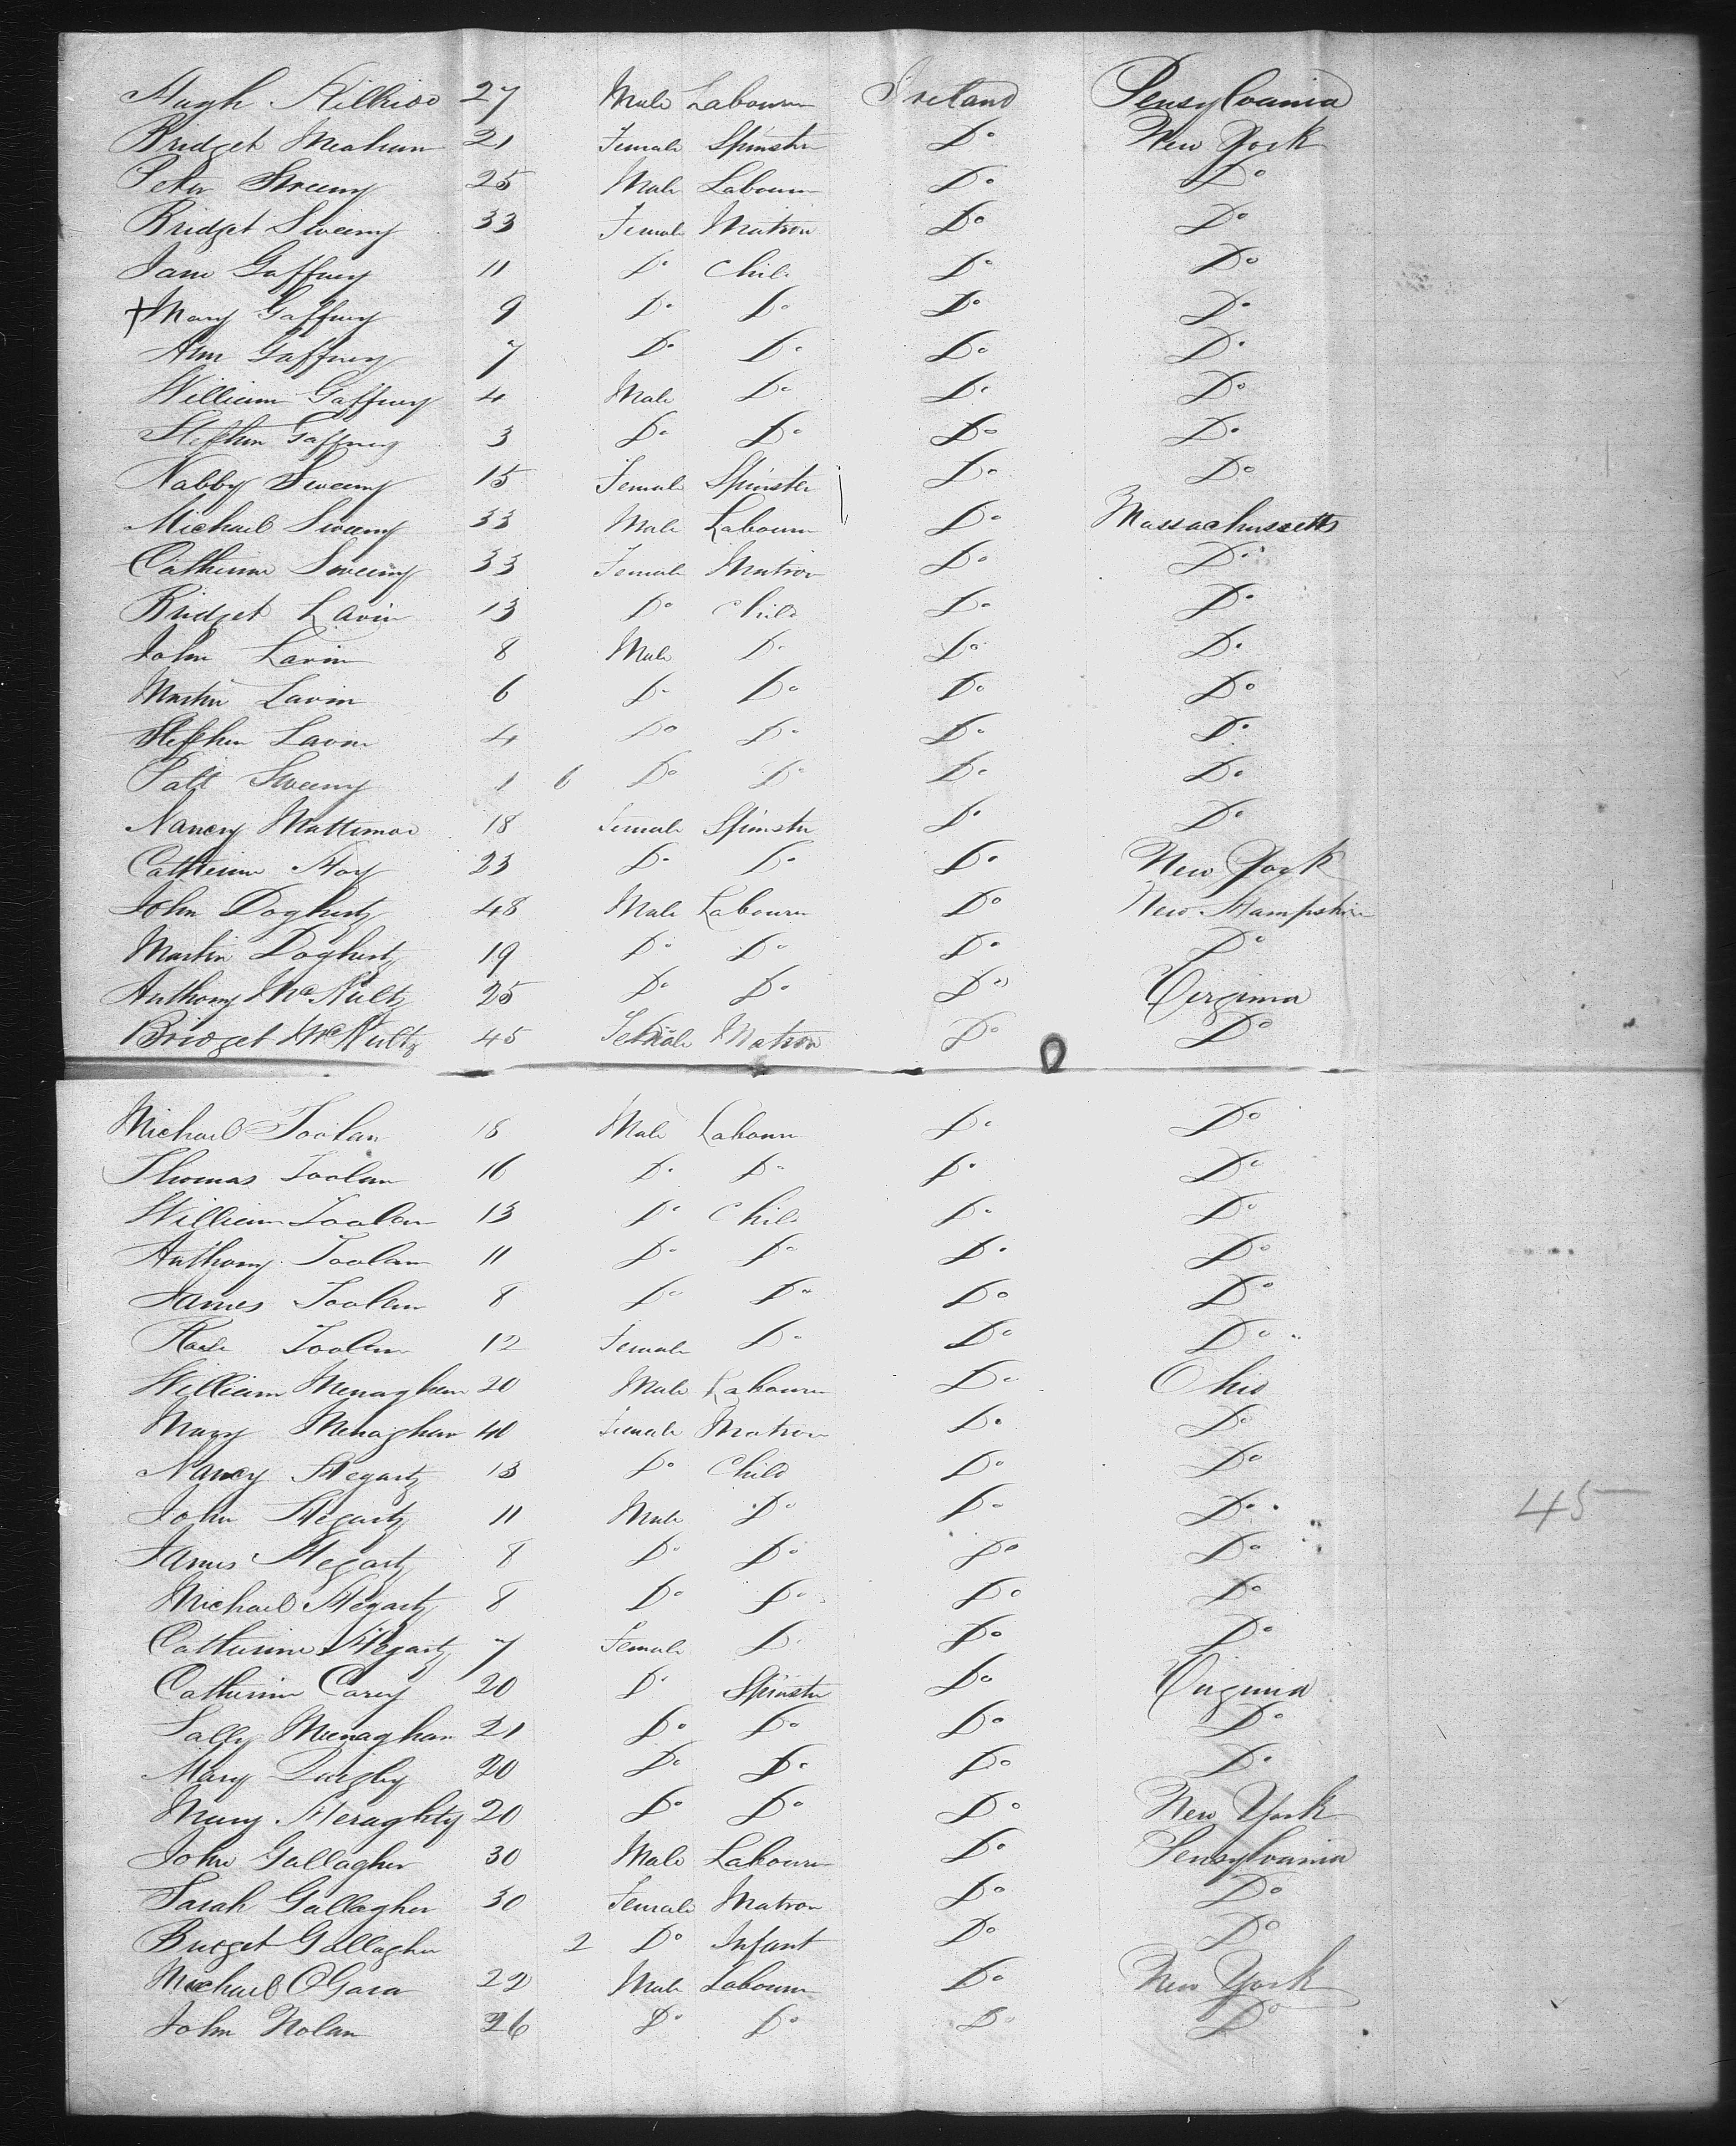 Hugh Kilkiso 27 Male Labourer Ireland Pensylvania
Bridget Meahun 21 Female Spinster Do New York
Peter Sweeny 25 Male Labourer Do Do
Bridget Sweeny 33 Female Matron Do Do
Jane Gaffney 11 Do Child Do Do
+ Mary Gaffney 9 Do Do Do Do
Ann Gaffney 7 Do Do Do Do
William Gaffney 4 Male Do Do Do
Stephen Gaffney 3 Do Do Do Do
Nabby Sweeny 15 Female Spinster Do Do
Michael Sweeny 33 Male Labourer Do Massachussetts
Catherine Sweeny 33 Female Matron Do Do
Bridget Lavin 13 Do Child Do Do
John Lavin 8 Male Do Do Do
Martin Lavin 6 Do Do Do Do
Stephen Lavin 4 Do Do Do Do
Patt Sweeny 1 6 Do Do Do Do
Nancy Mattimoe 18 Female Spinster Do Do
Catherine Hoy 23 Do Do Do New York
John Dogherty 48 Male Labourer Do New Hampshire
Martin Dogherty 19 Do Do Do Do
Anthony McNulty 25 Do Do Do Virginia
Bridget McNulty 45 Female Matron Do Do
Michael Toolan 18 Male Labourer Do Do
Thomas Toolan 16 Do Do Do Do
William Toolan 13 Do Child Do Do
Anthony Toolan 11 Do Do Do Do
James Toolan 8 Do Do Do Do
Rose Toolan 12 Female Do Do Do
William Menaghan 20 Male Labourer Do Ohio
Mary Menaghan 40 Female Matron Do Do
Nancy Hegarty 13 Do Child Do Do
John Hegarty 11 Male Do Do Do
45
James Hegarty 8 Do Do Do Do
Michael Hegarty 8 Do Do Do Do
Catherine Hegarty 7 Female Do Do Do
Catherine Carey 20 Do Spinster Do Virginia
Sally Menaghan 21 Do Do Do Do
Mary Quigley 20 Do Do Do Do
Mary Heraghty 20 Do Do Do New York
John Gallagher 30 Male Labourer Do Pensylvania
Sarah Gallagher 30 Female Matron Do Do
Bridget Gallagher 2 Do Infant Do Do
Michael OGara 22 Male Labourer Do New York
John Nolan 26 Do Do Do Do